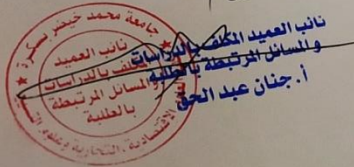 جامعة محمد خيضر بسكرة
نائب العميد
المكلف بالدراسات
والمسائل المرتبطة
بالطلبة
الاقتصادية، التجارية وعلوم
نائب العميد المكلف بالدراسات
والمسائل المرتبطة بالطلبة
أ. جنان عبد الحق